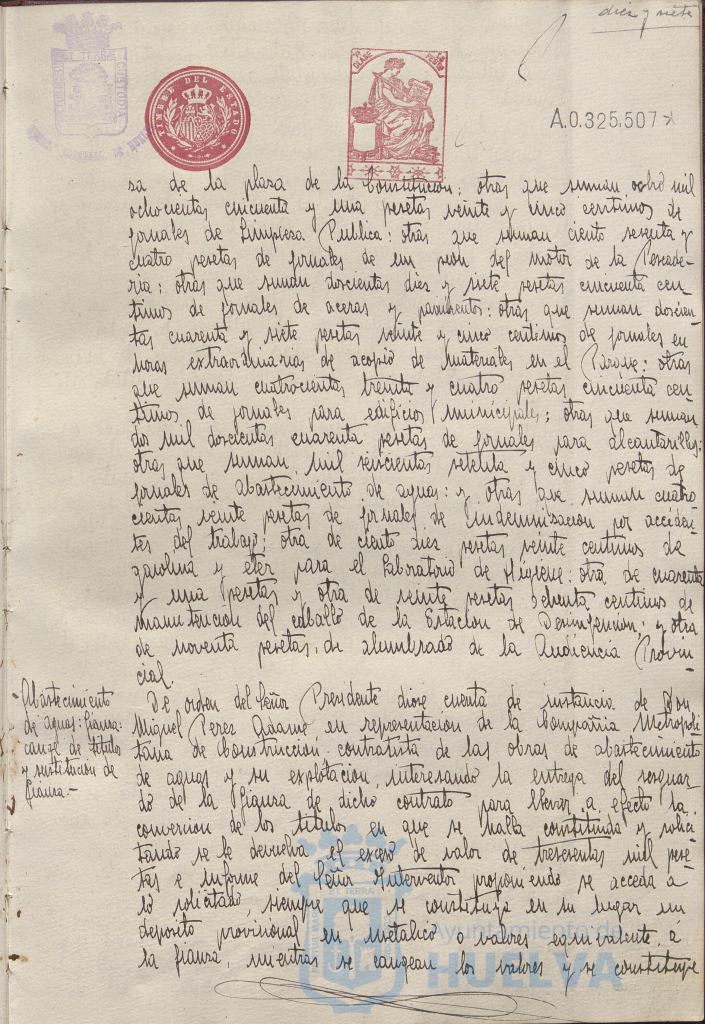 diez y siete
TIMBRE DEL ESTADO
A.0.325,507
sa de la plaza de la Constitucion; otras que suman ocho mil
ochocientas cincuenta y una pesetas veinte y cinco centimos de
jornales de Limpieza Publica: otras que suman ciento sesenta y
cuatro pesetas de jornales de un peon del motor de la Pescade-
ria: otras que suman doscientas diez y siete pesetas cincuenta cen-
timos de jornales de aceras y pavimentos: otras que suman doscien-
tas cuarenta y siete pesetas veinte y cinco centimos de jornales en
horas extraordinarias de acopio de materiales en el Parque: otras
que suman cuatrocientas treinta y cuatro pesetas cincuenta cen-
timos de jornales para edificios municipales; otras que suman
dos mil doscientas cuarenta pesetas de jornales para alcantarillas:
otras que suman mil seiscientas setenta y cinco pesetas de
jornales de abastecimiento de aguas: y otras que suman cuatro
cientas veinte pesetas de jornales de indemnizacion por acciden-
tes del trabajo: otra de ciento diez pesetas veinte centimos de
gasolina y eter para el Laboratorio de Higiene: otra de cuarenta
y una pesetas y otra de veinte pesetas ochenta centimos de
manutencion del caballo de la Estacion de Desinfeccion; y otra
de noventa pesetas, de alumbrado de la Audiencia Provin-
cial.
Abastecimiento
de aguas: fianza:
cange de titulos
y sustitucion de
fianza.-
De orden del Señor Presidente diose cuenta de instancia de Don
Miguel Perez Adame en representacion de la Compañia Metropoli
tana de Construccion contratista de las obras de abastecimiento
de aguas y su explotacion, interesando la entrega del resguar
do de la fianza de dicho contrato para llevar a efecto la
conversion de los titulos en que se halla constituida y solici
tando se le devuelva el exceso de valor de trescientas mil pese
tas e informe del Señor Interventor proponiendo se acceda a
lo solicitado, siempre que se constituya en su lugar un
deposito provisional en metalico o valores equivalente a
la fianza, mientras se cangean los valores y se constituye
Ayuntamiento de
HUELVA